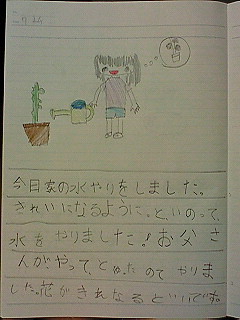 今日家の水やりをしました。
きれいになるように。と、いのって、
水をやりました！お父さ
んが、やって、と
のでやりま
した。花がきれなるといいです。